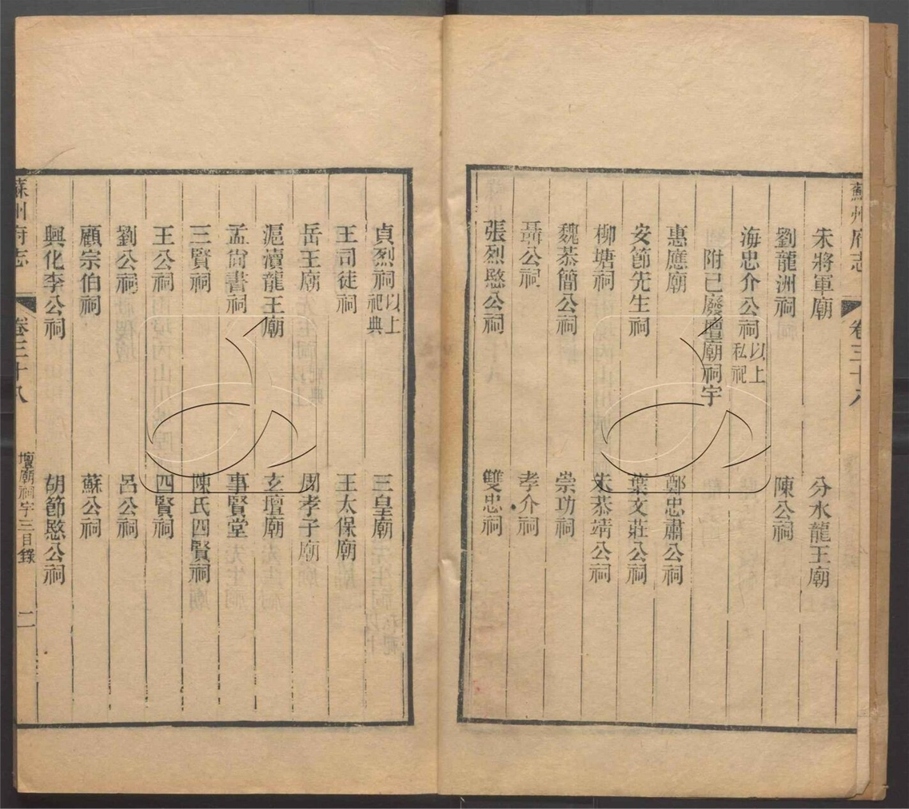 蘇州府志 卷三十八
朱將軍廟 分水龍王廟
劉龍洲祠 陳公祠
海忠介公祠以上私祀
附已廢壇廟祠宇
惠應廟 鄭忠肅公祠
安節先生祠 葉文莊公祠
柳塘祠 朱恭靖公祠
魏恭簡公祠 崇功祠
聶公祠 孝介祠
張烈愍公祠 雙忠祠
貞烈祠以上祀典 三皇廟
王司徒祠 王太保廟
岳王廟 周孝子廟
滬瀆龍王廟 玄壇廟
孟尚書祠 事賢堂
三賢祠 陳氏四賢祠
王公祠 四賢祠
劉公祠 呂公祠
顧宗伯祠 蘇公祠
興化李公祠 胡節愍公祠
蘇州府志 卷三十八 壇廟祠宇三目錄 二